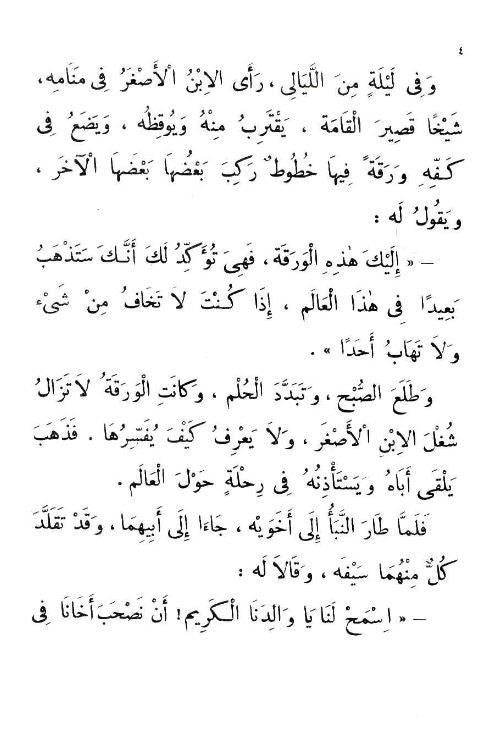 ٤
وَفِى لَيْلَةٍ مِنَ اللَّيَالِى ، رَأَى الاِبْنُ الْأَصْغَرُ فِى مَنَامِهِ،
شَيْخًا قَصِيرَ الْقَامَةِ ، يَقْتَرِبُ مِنْهُ وَيُوقِظُه ، وَيَضَعُ فِى
كَفِّهِ وَرَقَةً فِيهَا خُطُوطٌ رَكِبَ بَعْضُهَا بَعْضَهَا الْآخَر ،
وَيَقُولُ لَه :
– « إِلَيْكَ هٰذِهِ الْوَرَقَة ، فَهِىَ تُؤَكِّدُ لَكَ أَنَّكَ سَتَذْهَبُ
بَعِيدًا فِى هٰذَا الْعَالَم ، إِذَا كُنْتَ لَا تَخَافُ مِنْ شَىْء
وَلَا تَهَابُ أَحَدًا » .
وَطَلَعَ الصُّبْح ، وَتَبَدَّدَ الْحُلْم ، وَكَانَتِ الْوَرَقَةُ لَا تَزَالُ
شُغْلَ الاِبْنِ الْأَصْغَر ، وَلَا يَعْرِفُ كَيْفَ يُفَسِّرُهَا . فَذَهَبَ
يَلْقَى أَبَاهُ وَيَسْتَأْذِنُهُ فِى رِحْلَةٍ حَوْلَ الْعَالَم .
فَلَمَّا طَارَ النَّبَأُ إِلَى أَخَوَيْه ، جَاءَا إِلَى أَبِيهِمَا ، وَقَدْ تَقَلَّدَ
كُلٌّ مِنْهُمَا سَيْفَه ، وَقَالَا لَه :
– « اِسْمَحْ لَنَا يَا وَالِدَنَا الْكَرِيم ! أَنْ نَصْحَبَ أَخَانَا فِى